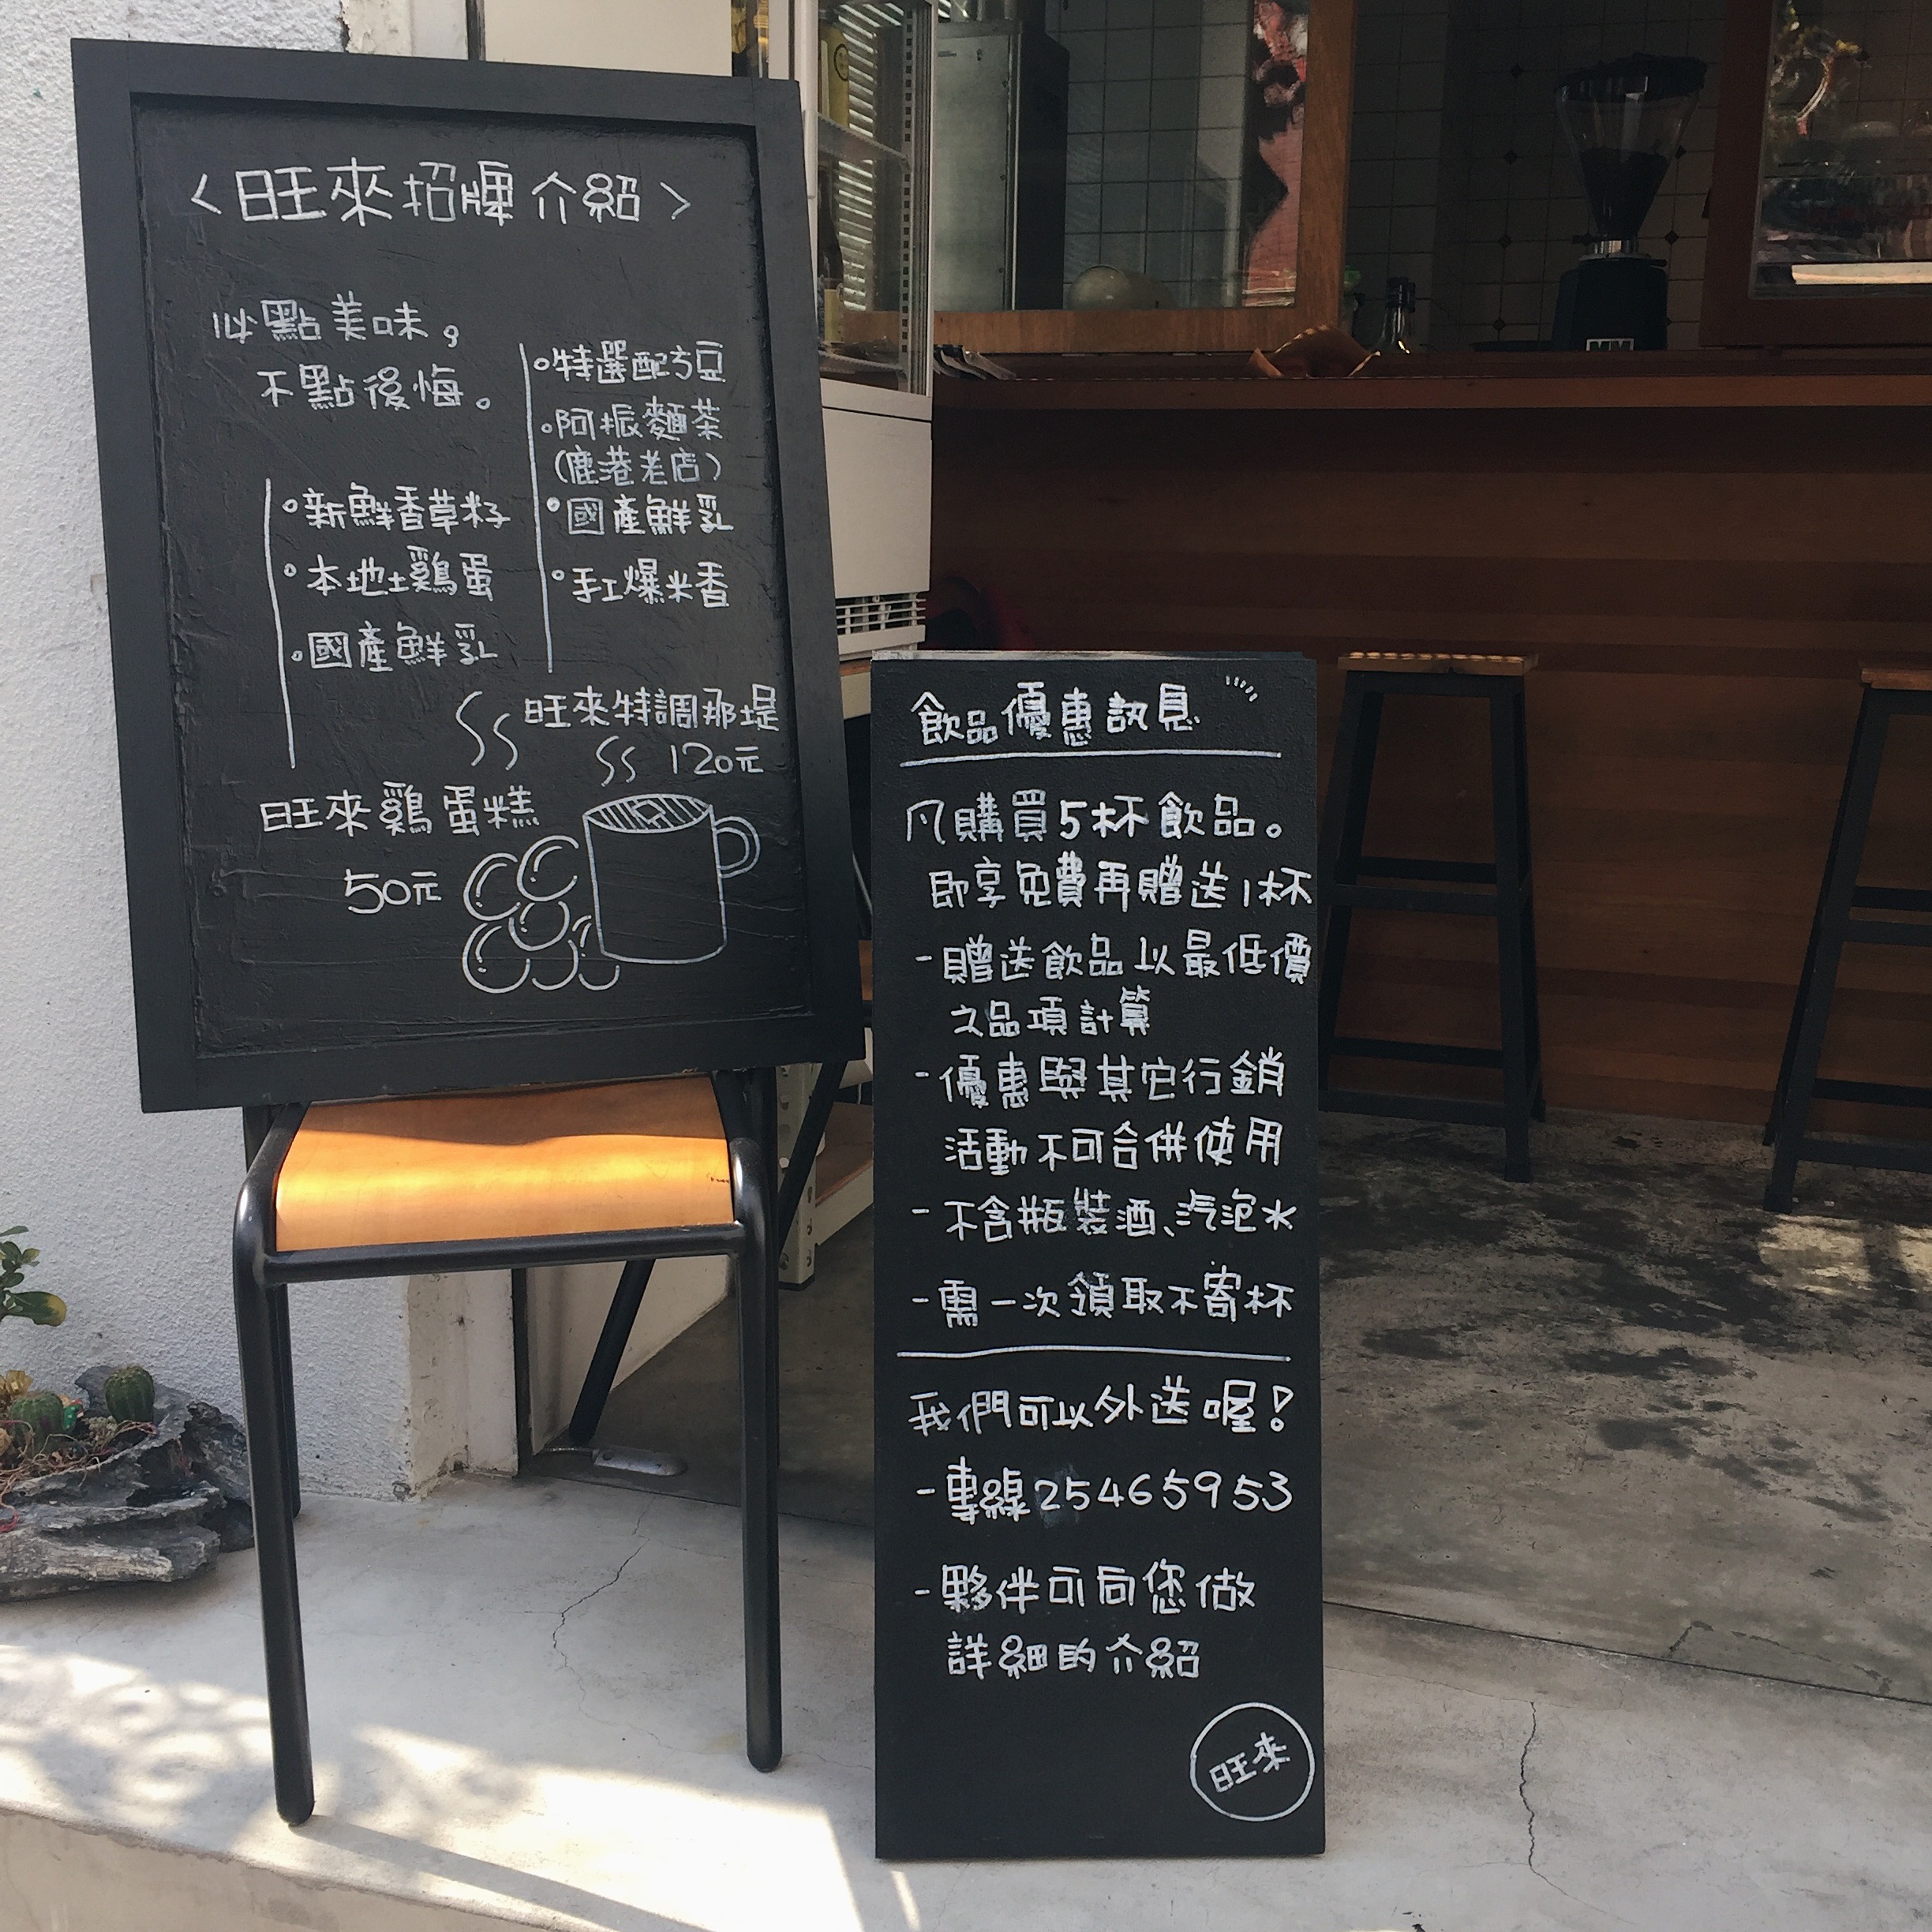 <旺來招牌介紹>
必點美味。
不點後悔。
。新鮮香草籽
。本地土鷄蛋
。國產鮮乳
旺來鷄蛋糕
50元
。特選配方豆
。阿振麵茶
(鹿港老店)
。國產鮮乳
。手工爆米香
旺來特調那堤
120元
飲品優惠訊息
凡購買5杯飲品。
即享免費再贈送1杯
-贈送飲品以最低價
之品項計算
-優惠與其它行銷
活動不可合併使用
-不含瓶裝酒、汽泡水
-需一次領取不寄杯
我們可以外送喔!
-專線25465953
-夥伴可向您做
詳細的介紹
旺來